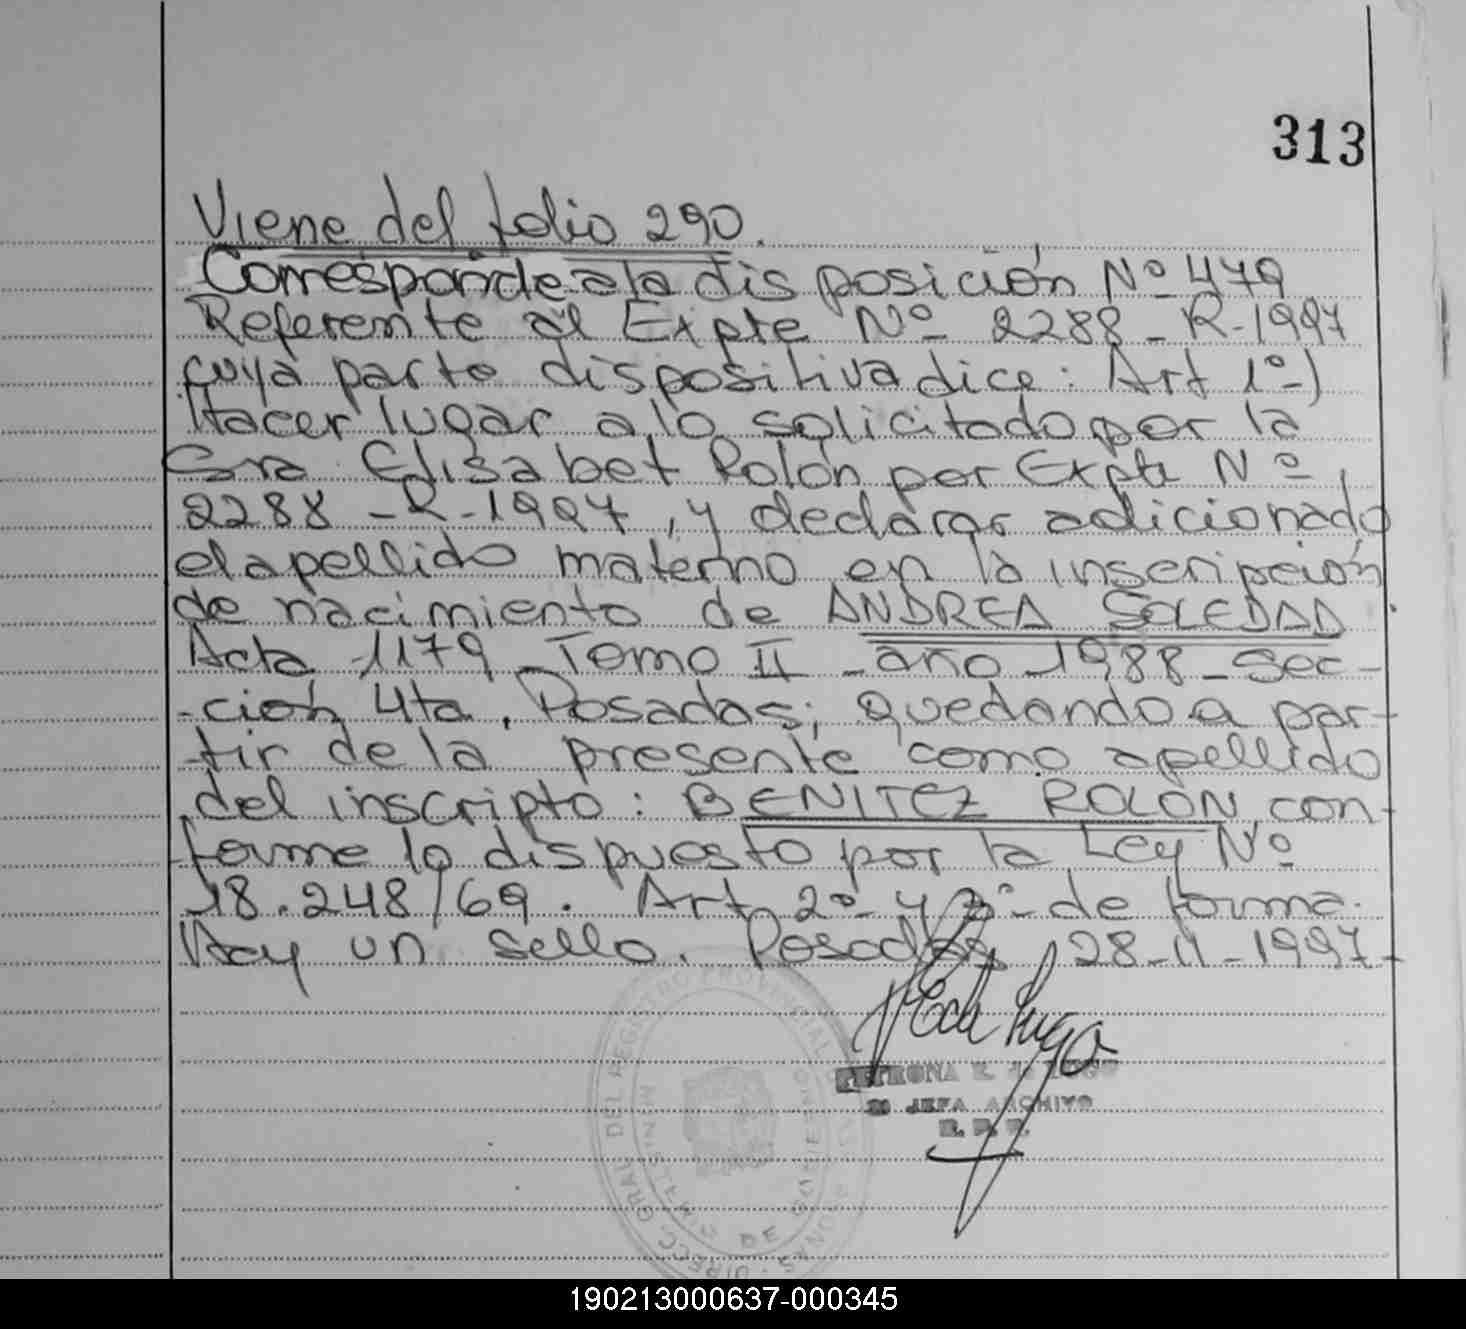 313
Viene del folio 290.
Corresponde a la disposición Nº 479
Referente al Expte Nº 2288-R-1997
cuya parte dispositiva dice: Art 1º-)
Hacer lugar a lo solicitado por la
Sra Elisabet Rolón por Expte Nº
2288-R-1997, y declarar adicionado
el apellido materno en la inscripción
de nacimiento de ANDREA SOLEDAD
Acta 1179 Tomo II - año 1988 - Sec-
-ción 4ta, Posadas; quedando a par-
tir de la presente como apellido
del inscripto: BENITEZ ROLÓN con-
forme lo dispuesto por la Ley Nº
18.248/69. Art 2º y 3º de forma.
Hay un sello. Posadas, 28-11-1997-
PETRONA E. LUGO
JEFA ARCHIVO
DIRECC GRAL DEL REGISTRO PROVINCIAL
DE
190213000637-000345